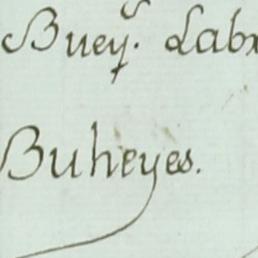 Buey.s Lab
Buheyes.